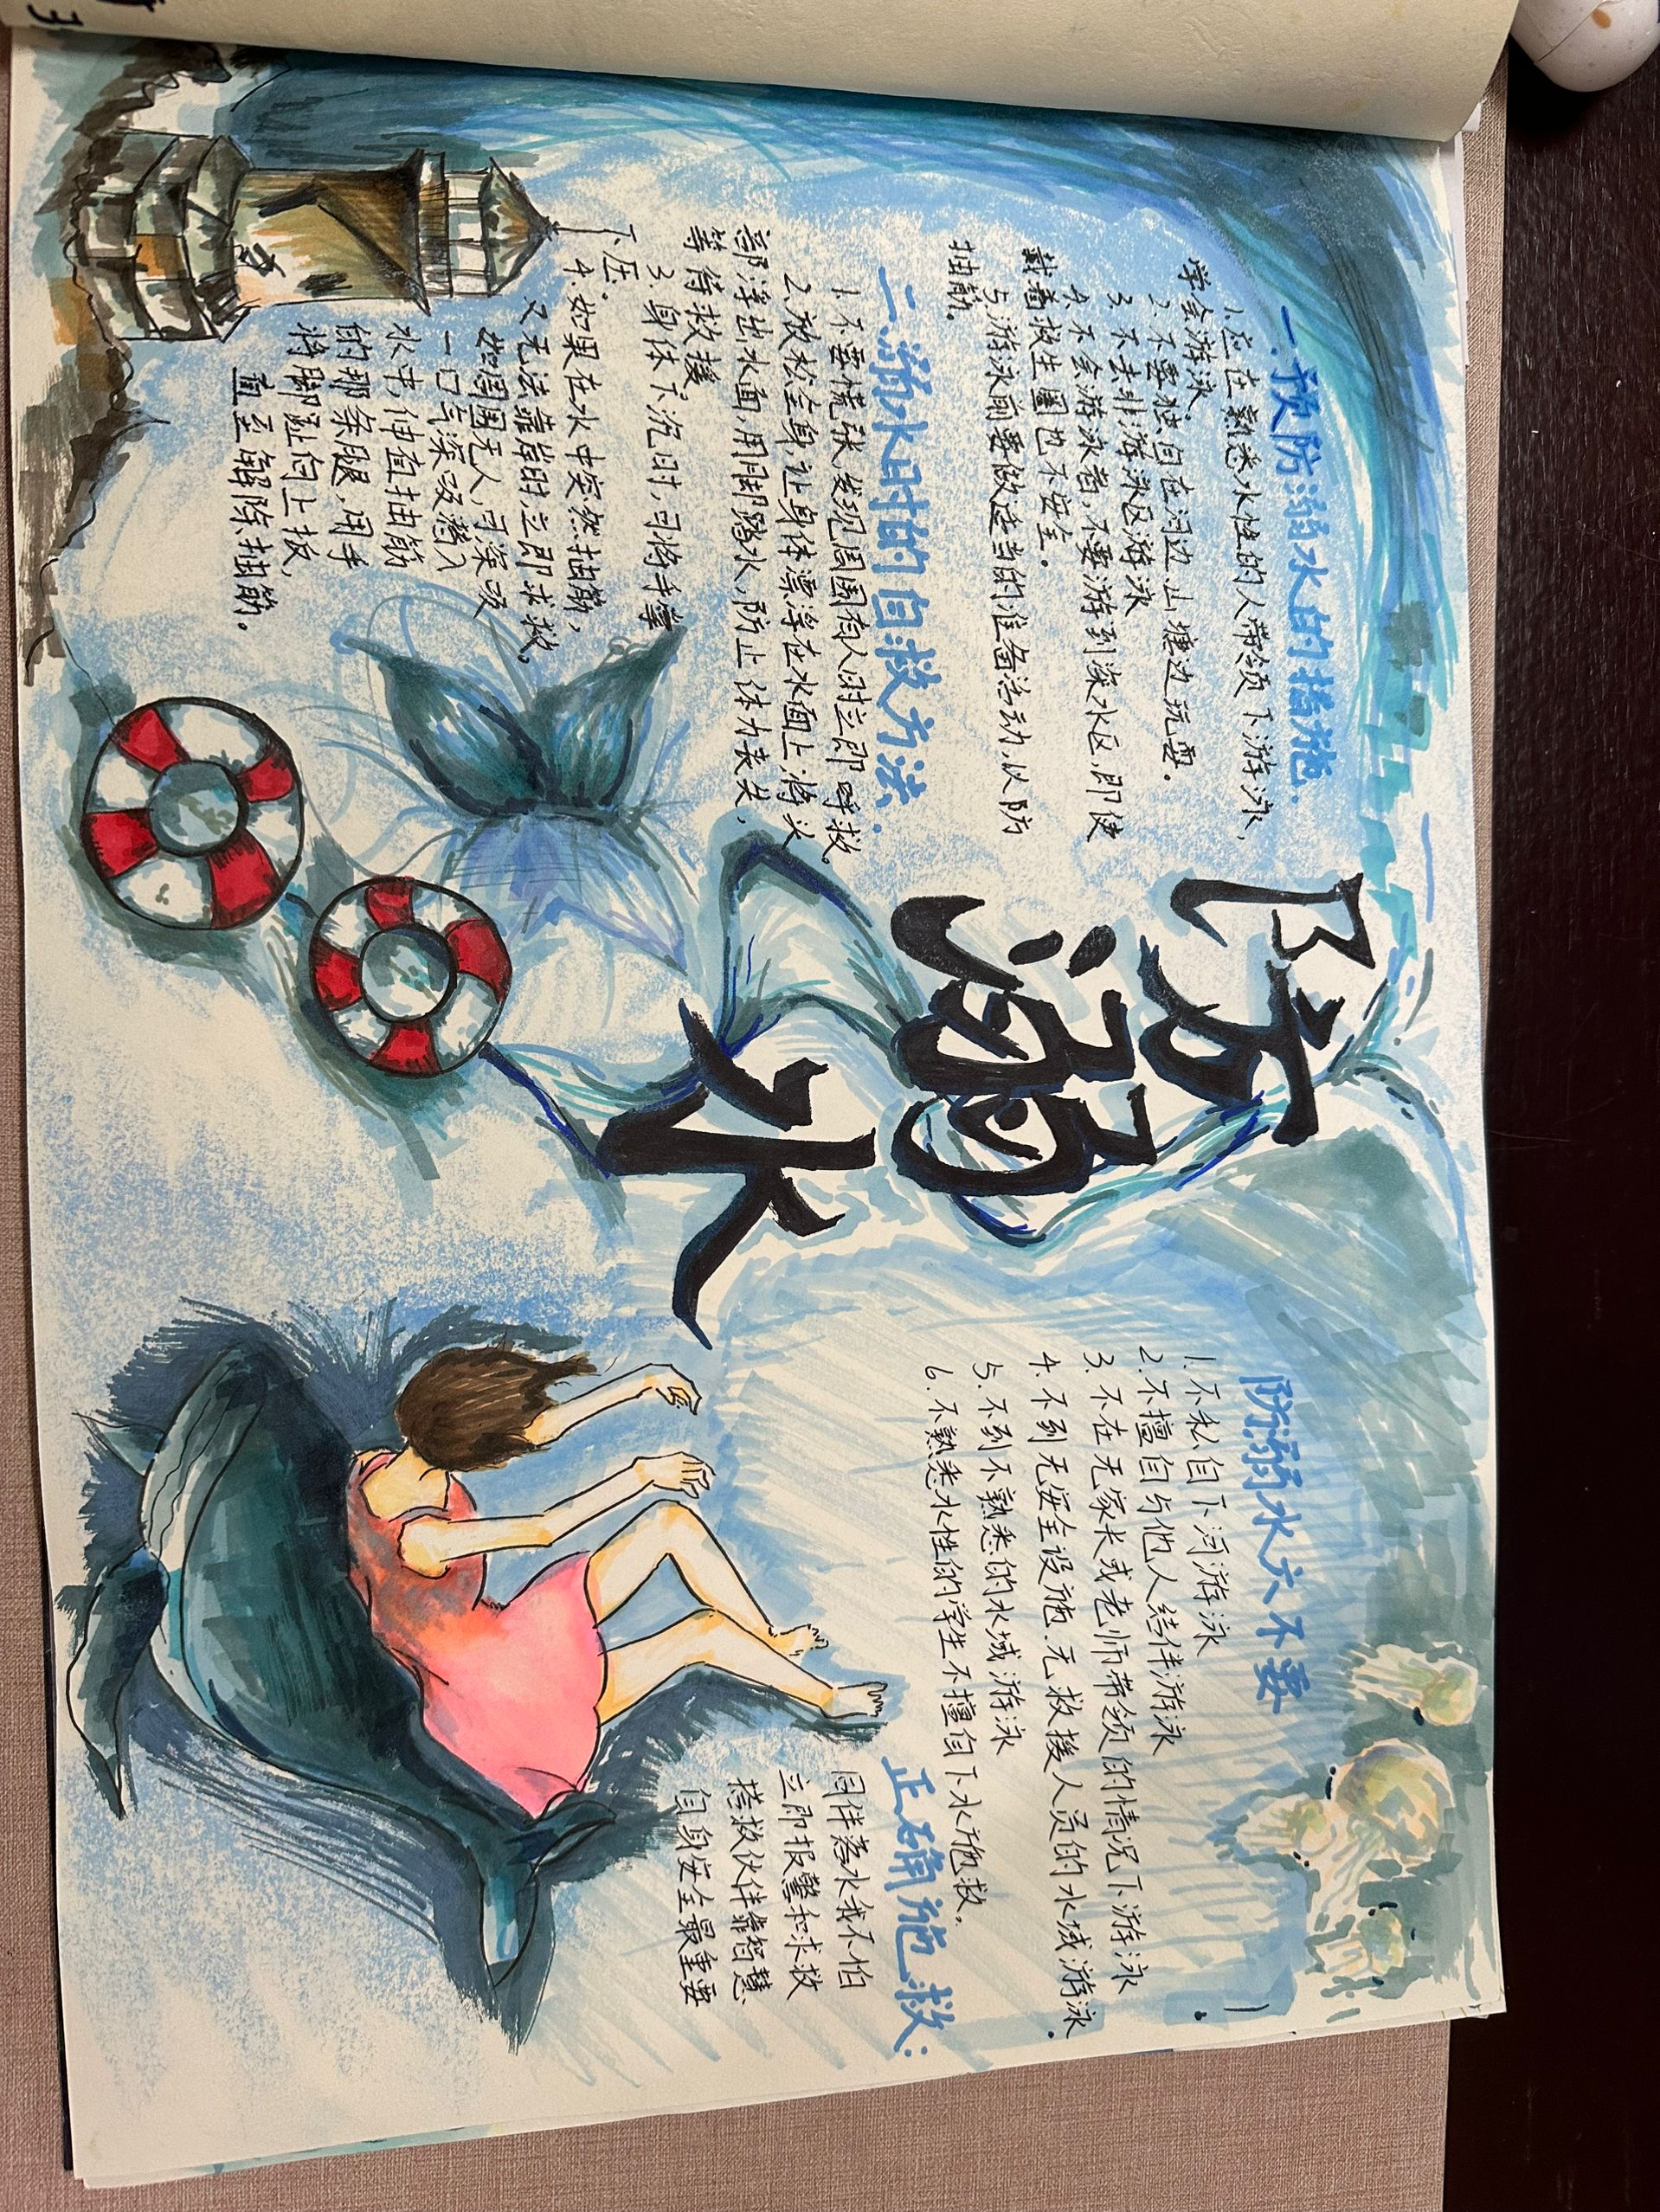 防溺水
一.预防溺水的措施.
1.应在熟悉水性的人带领下游泳,
学会游泳.
2.不要独自在河边.山塘边玩耍.
3.不去非游泳区游泳
4.不会游泳者,不要游到深水区,即使
戴着救生圈也不安全.
5.游泳前要做适当的准备活动,以防
抽筋.
二.溺水时的自救方法.
1.不要慌张,发现周围有人时立即呼救.
2.放松全身,让身体漂浮在水面上,将头
部浮出水面,用脚踏水,防止体力丧失,
等待救援.
3.身体下沉时,可将手掌
下压.
4.如果在水中突然抽筋,
又无法靠岸时,立即求救.
如周围无人,可深吸
一口气深吸潜入
水中,伸直抽筋
的那条腿,用手
将脚趾向上扳,
直至解除抽筋.
防溺水六不要
1.不私自下河游泳
2.不擅自与他人结伴游泳
3.不在无家长或老师带领的情况下游泳
4.不到无安全设施.无救援人员的水域游泳.
5.不到不熟悉的水域游泳
6.不熟悉水性的学生不擅自下水施救.
正确施救:
同伴落水我不怕
立即报警和求救
搭救伙伴靠智慧
自身安全最重要